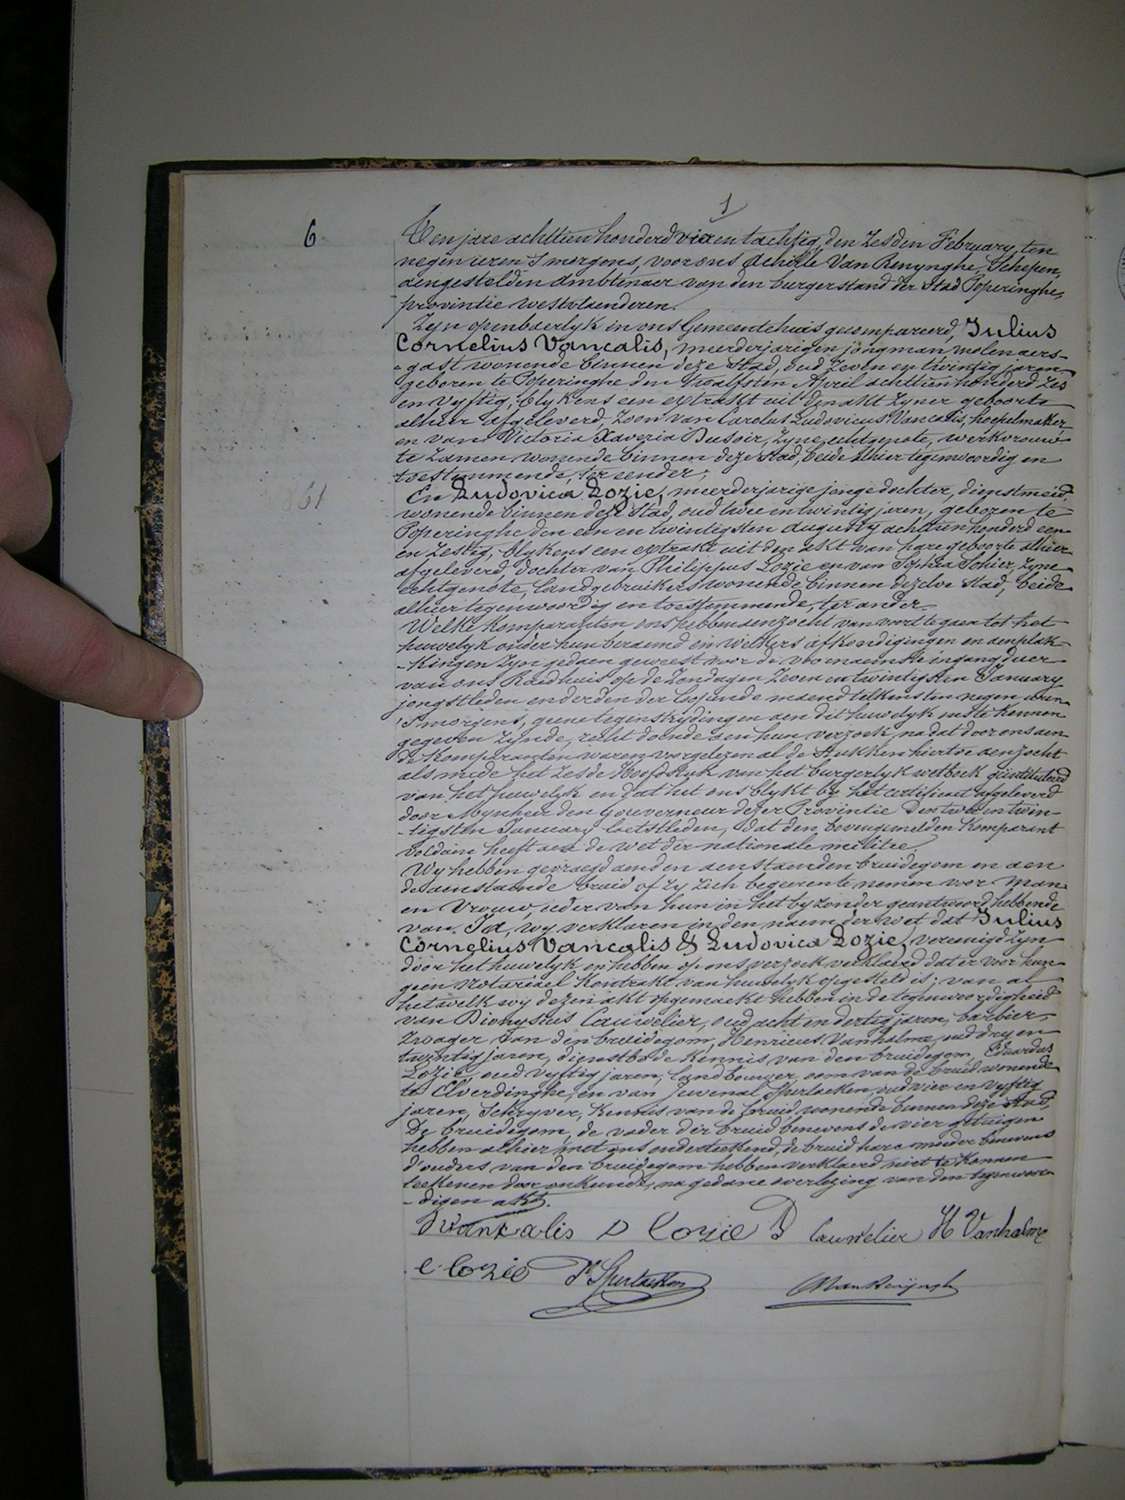 1
6
Ten jare achttien honderd vier en tachtig, den zesden February, ten
negen uren 's morgens, voor ons Achille Van Renynghe, Schepen,
aengestelden Ambtenaer van den burgerstand der Stad Poperinghe,
provintie Westvlaenderen.
Zyn openbaerlyk in ons Gemeentehuis gecompareerd, Julius
Cornelius Vancalis, meerderjarigen jongman, molenaers-
-gast wonende binnen deze Stad, oud zeven en twintig jaren,
geboren te Poperinghe den twaalfsten April achttien honderd zes
en vyftig, blykens een extrakt uit den akt zyner geboorte
alhier afgeleverd, Zoon van Carolus Ludovicus Vancalis, hoepelmaker
en van Victoria Xaveria Dusoir, zyne echtgenote, werkvrouw
te zamen wonende binnen deze stad, beide alhier tegenwoordig en
toestemmende, ter eender;
En Ludovica Lozie, meerderjarige jonge dochter, dienstmeid
wonende binnen deze Stad, oud twee en twintig jaren, geboren te
Poperinghe den een en twintigsten Augusty achttien honderd een
en zestig, blykens een extrakt uit den akt van hare geboorte alhier
afgeleverd, dochter van Philippus Lozie en van Sophia Sohier, zyne
echtgenote, landgebruikers wonende binnen dezelve Stad, beide
alhier tegenwoordig en toestemmende, ter ander.
Welke komparanten ons hebben aenzocht van voort te gaen tot het
huwelyk onder hun beraemd en welkers afkondigingen en aenplak-
-kingen zyn gedaen geweest voor de voornaemste ingangdeur
van ons Raedhuis op de Zondagen zeven en twintigsten January
jongstleden en derden der loopende maend telkens ten negen uren
's morgens, geene tegenstrydingen aen dit huwelyk ons te kennen
gegeven zynde, recht doende aen hun verzoek, na dat door ons aen
de komparanten waren voorgelezen al de stukken hiertoe aenzocht
als mede het zesde Hoofdstuk van het burgerlyk wetboek geintituleerd
van het huwelyk en dat het ons blykt by het certificaet afgeleverd
door Mynheer den Gouverneur dezer Provintie den twee en twin-
-tigsten January laetstleden, dat den bovengemelden komparant
voldaen heeft aen de wet der nationale militie.
Wy hebben gevraegd aen den aenstaenden bruidegom en aen
de aenstaende bruid of zy zich begeeren te nemen voor Man
en Vrouw, ieder van hun in het byzonder geantwoord hebbende
van Ja, wy verklaren in den naem der wet dat Julius
Cornelius Vancalis & Ludovica Lozie, vereenigd zyn
door het huwelyk en hebben op ons verzoek verklaerd dat er voor hun
geen Notarieel Kontrakt van huwelyk opgesteld is; van al
hetwelk wy dezen akt opgemaekt hebben in de tegenwoordigheid
van Dionysius Cauwelier, oud acht en dertig jaren, barbier,
Zwager van den bruidegom, Henricus Vanhalme, oud dry en
twintig jaren, dienstbode, Kennis van den bruidegom, Eduardus
Lozie, oud vyftig jaren, landbouwer, oom van de bruid wonende
te Elverdinghe, en van Juvenal Sperlaeken, oud vier en vyftig
jaren, Schryver, Kennis van de bruid, wonende binnen deze Stad,
De bruidegom, de vader der bruid benevens de vier getuigen
hebben alhier met ons onderteekend, de bruid hare moeder benevens
d'ouders van den bruidegom hebben verklaerd niet te konnen
teekenen door onkunde, na gedane overlezing van den tegenwoor-
-digen akt.
J Vankalis P Lozie D Cauwelier H Vanhalme
E. Lozie J. Sperlaeken A Van Renynghe